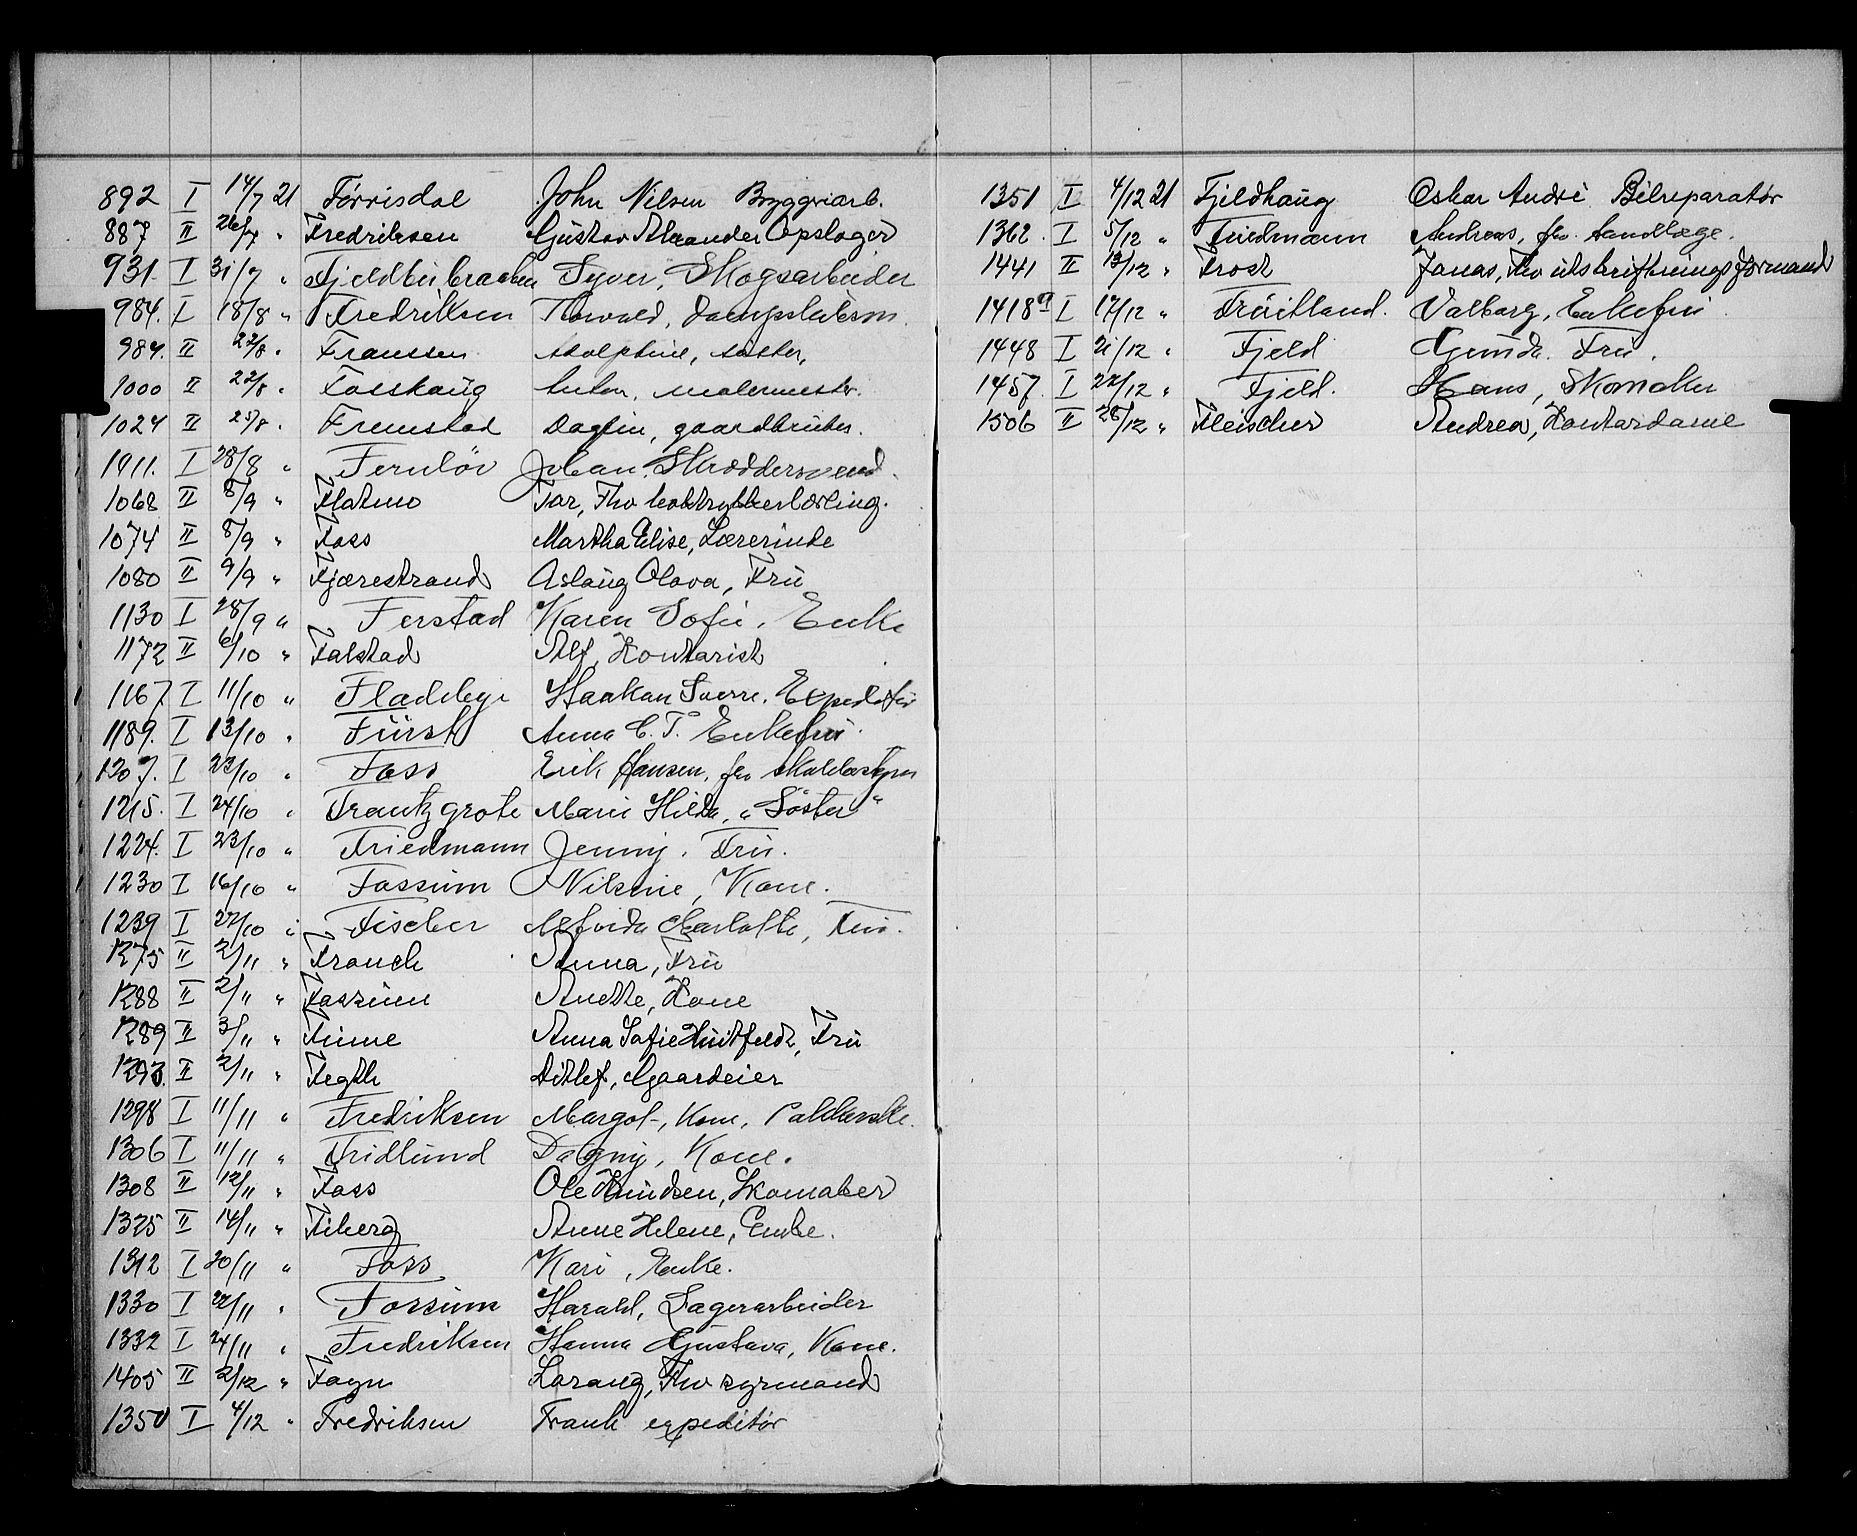 892 I 14/7 21 Førrisdal John Nilsen Byggriarb.
887 II 26/7 " Fredriksen Gustav Alexander Opslager
931. I 31/7 " Syver, Skogsarbeider
984. I 18/8 " Fredriksen Thorvald,
984. II 22/8 " Franssen Adolphine, søster,
1000 II 22/8 " Fosshaug Anton, malermester.
1024 II 25/8 " Fremstad Dagfin, gaardbruker.
1011. I 28/8 " Fernlöv Johan. Skræddersvend.
1068 II 8/9 " Flatmo Tor, Fhv boktrykkerlærling.
1074 II 8/9 " Foss Martha Elise, Lærerinde
1080 II 9/9 " Fjærestrand Aslaug Olava, Fru
1130 I 28/9 " Ferstad Karen Sofie. Enke
1172 II 6/10 " Falstad Alf, Kontorist
1167. I 11/10 " Fladeby Haakon Sverre. Expeditør
1189. I 13/10 " Fürst Anna C. T. Enkefru.
1207. I 23/10 " Foss Erik Hansen, fhv
1215. I 24/10 " Frantzgrote Marie Hilda, "Søster"
1224. I 23/10 " Friedmann Jenny. Fru.
1230 I 16/10 " Fossum Nilsine, Kone.
1239 I 27/10 " Fischer Alfrida Charlotte, Fru.
1275 II 2/11 " Franck Anna, Fru
1288 II 2/11 " Fossum Anette, Kone
1289 II 3/11 " Finne Anna Sofie Huitfeldt, Fru
1293. II 2/11 " Fegth Ditlef, Gaardeier
1298 I 11/11 " Fredriksen Margot, Kone,
1306 I 11/11 " Fridlund Dagny, Kone.
1308 II 12/11 " Foss Ole Knudsen, Skomaker
1325 II 14/11 " Fiberg Anne Helene, Enke.
1312 I 20/11 " Foss Kari, Enke.
1330 I 22/11 " Forsum Harald, Lagerarbeider
1332 I 24/11 " Fredriksen Hanna Gustava, Kone.
1405 II 2/12 " Fagn Laraug, Fhv styrmand
1350 I 4/12 " Fredriksen Frank expeditør
1351 I 4/12 21 Fjeldhaug Oskar André Bilreparatør
1362. I 5/12 " Friedmann Andreas, fhv. tandlæge.
1441 II 13/12 " Frost Jonas, Fhv utskriftningsformand
1418a I 17/12 " Fruitland. Valborg, Enkefru.
1448 I 21/12 " Fjeld Gunda. Fru.
1457. I 22/12 " Fjeld. Hans, Skomaker
1506 II 28/12 " Fleischer Andrea, Kontordame